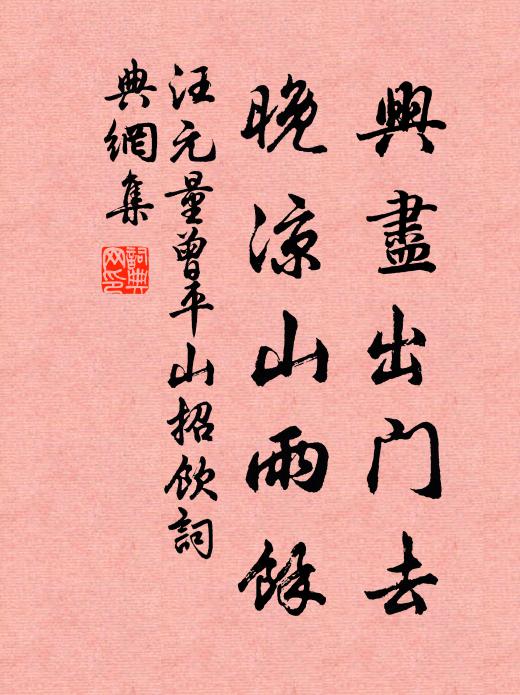 興盡出門去
晚涼山雨餘
汪元量曾平山招飲詞
典網集
詞典
网印